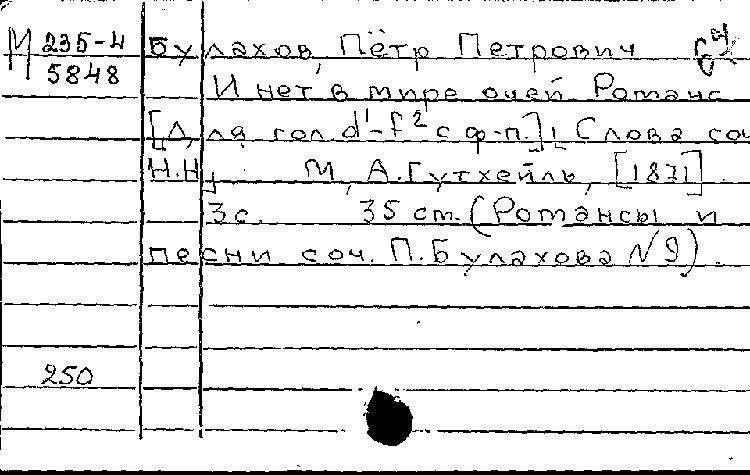 М 235-4 Булахов, Пётр Петрович
5848 И нет в мире очей. Романс
[Для гол. d¹-f² с ф-п.]; Слова соч.
Н.Н. М., А. Гутхейль, [1871].
3 с. 35 cm. (Романсы и
песни соч. П. Булахова №9).
250